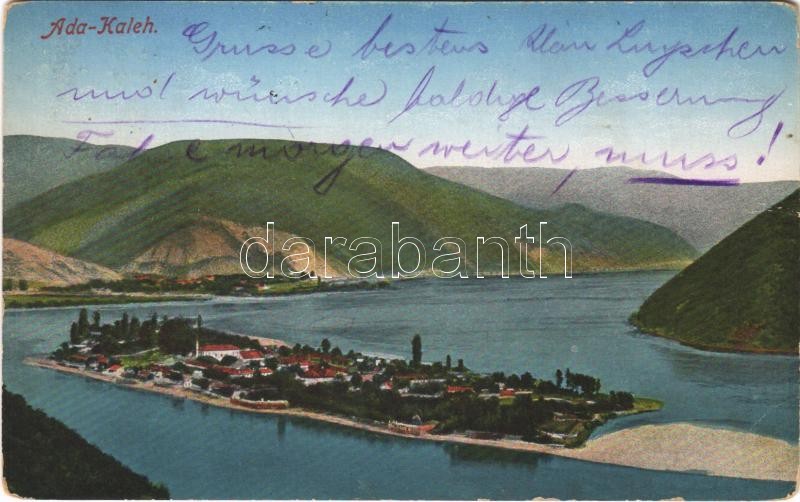 Ada-Kaleh.
Grüsse bestens
und wünsche baldige Besserung
Fahre morgen weiter, muss!
darabanth